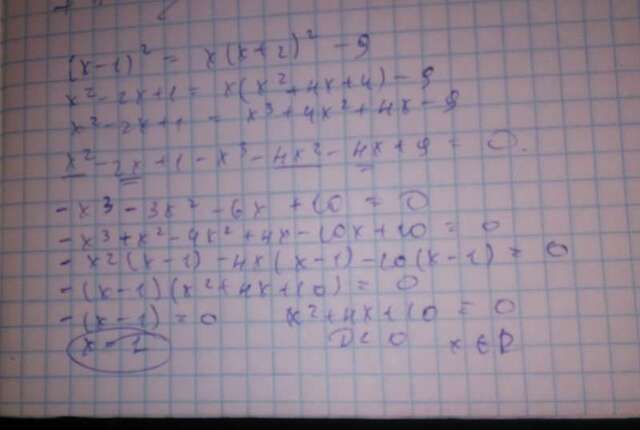 (x-1)² = x(x+2)² - 9
x² - 2x + 1 = x(x² + 4x + 4) - 9
x² - 2x + 1 = x³ + 4x² + 4x - 9
x² - 2x + 1 - x³ - 4x² - 4x + 9 = 0.
- x³ - 3x² - 6x + 10 = 0
- x³ + x² - 4x² + 4x - 10x + 10 = 0
- x²(x-1) - 4x(x-1) - 10(x-1) = 0
- (x-1)(x² + 4x + 10) = 0
- (x-1) = 0 x² + 4x + 10 = 0
x = 1 D < 0 x ∈ R